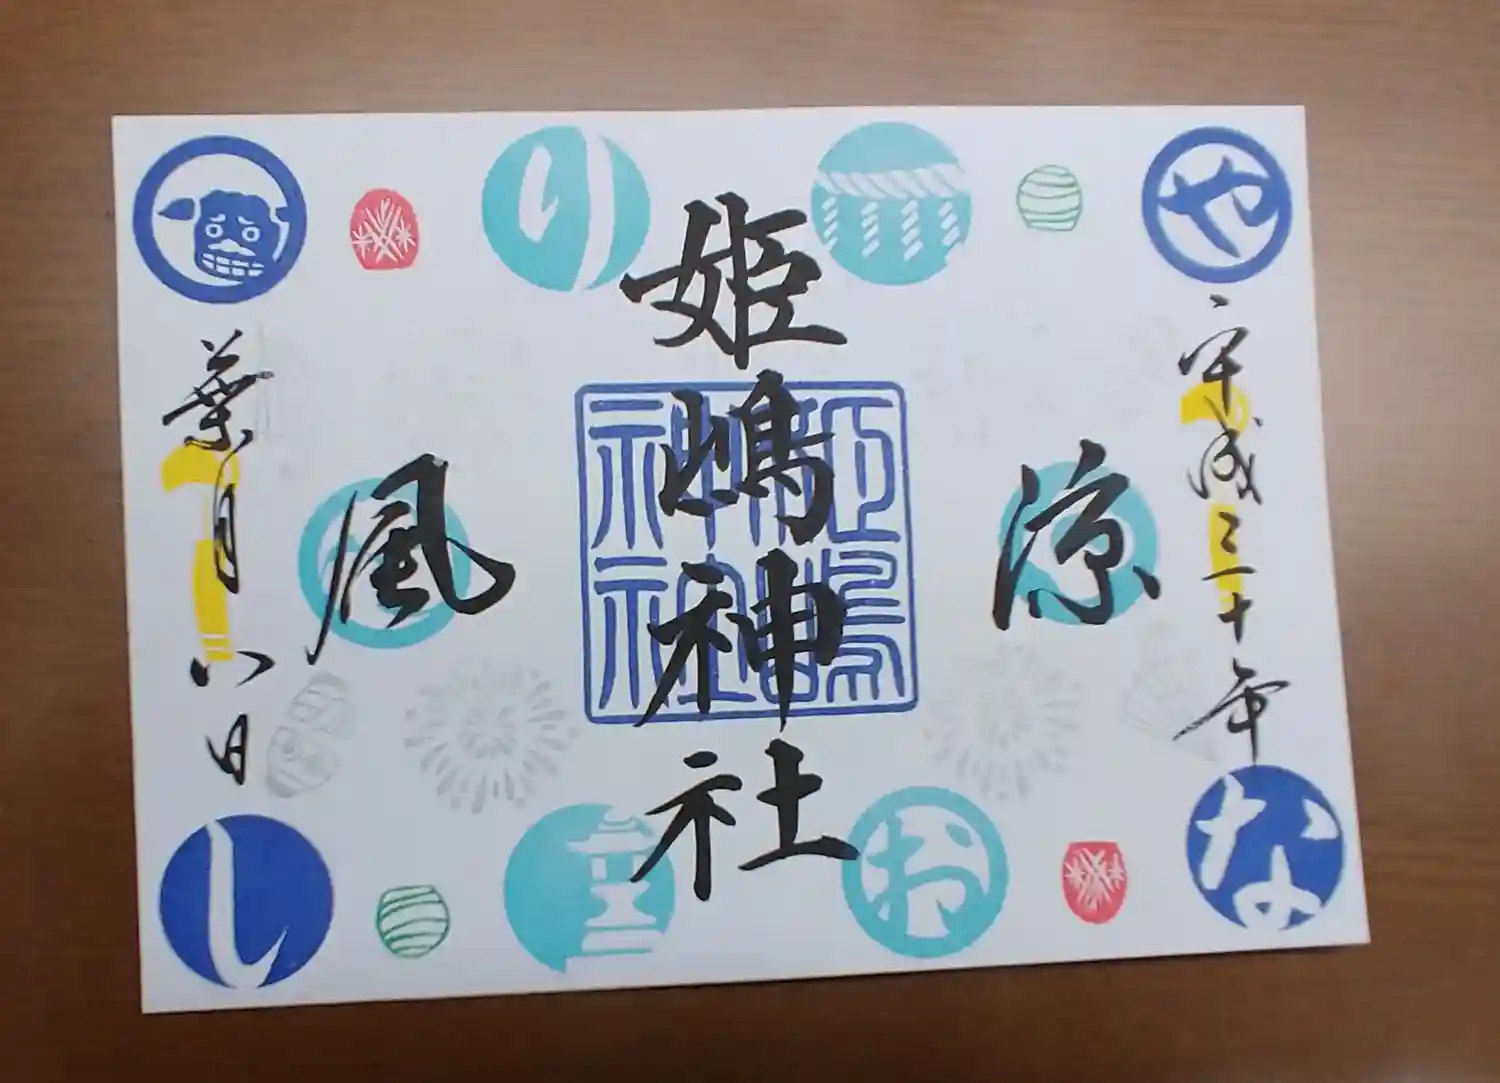 や
平成三十年
な
涼
お
姫嶋神社
姫嶋
神社
り
風
葉月八日
し